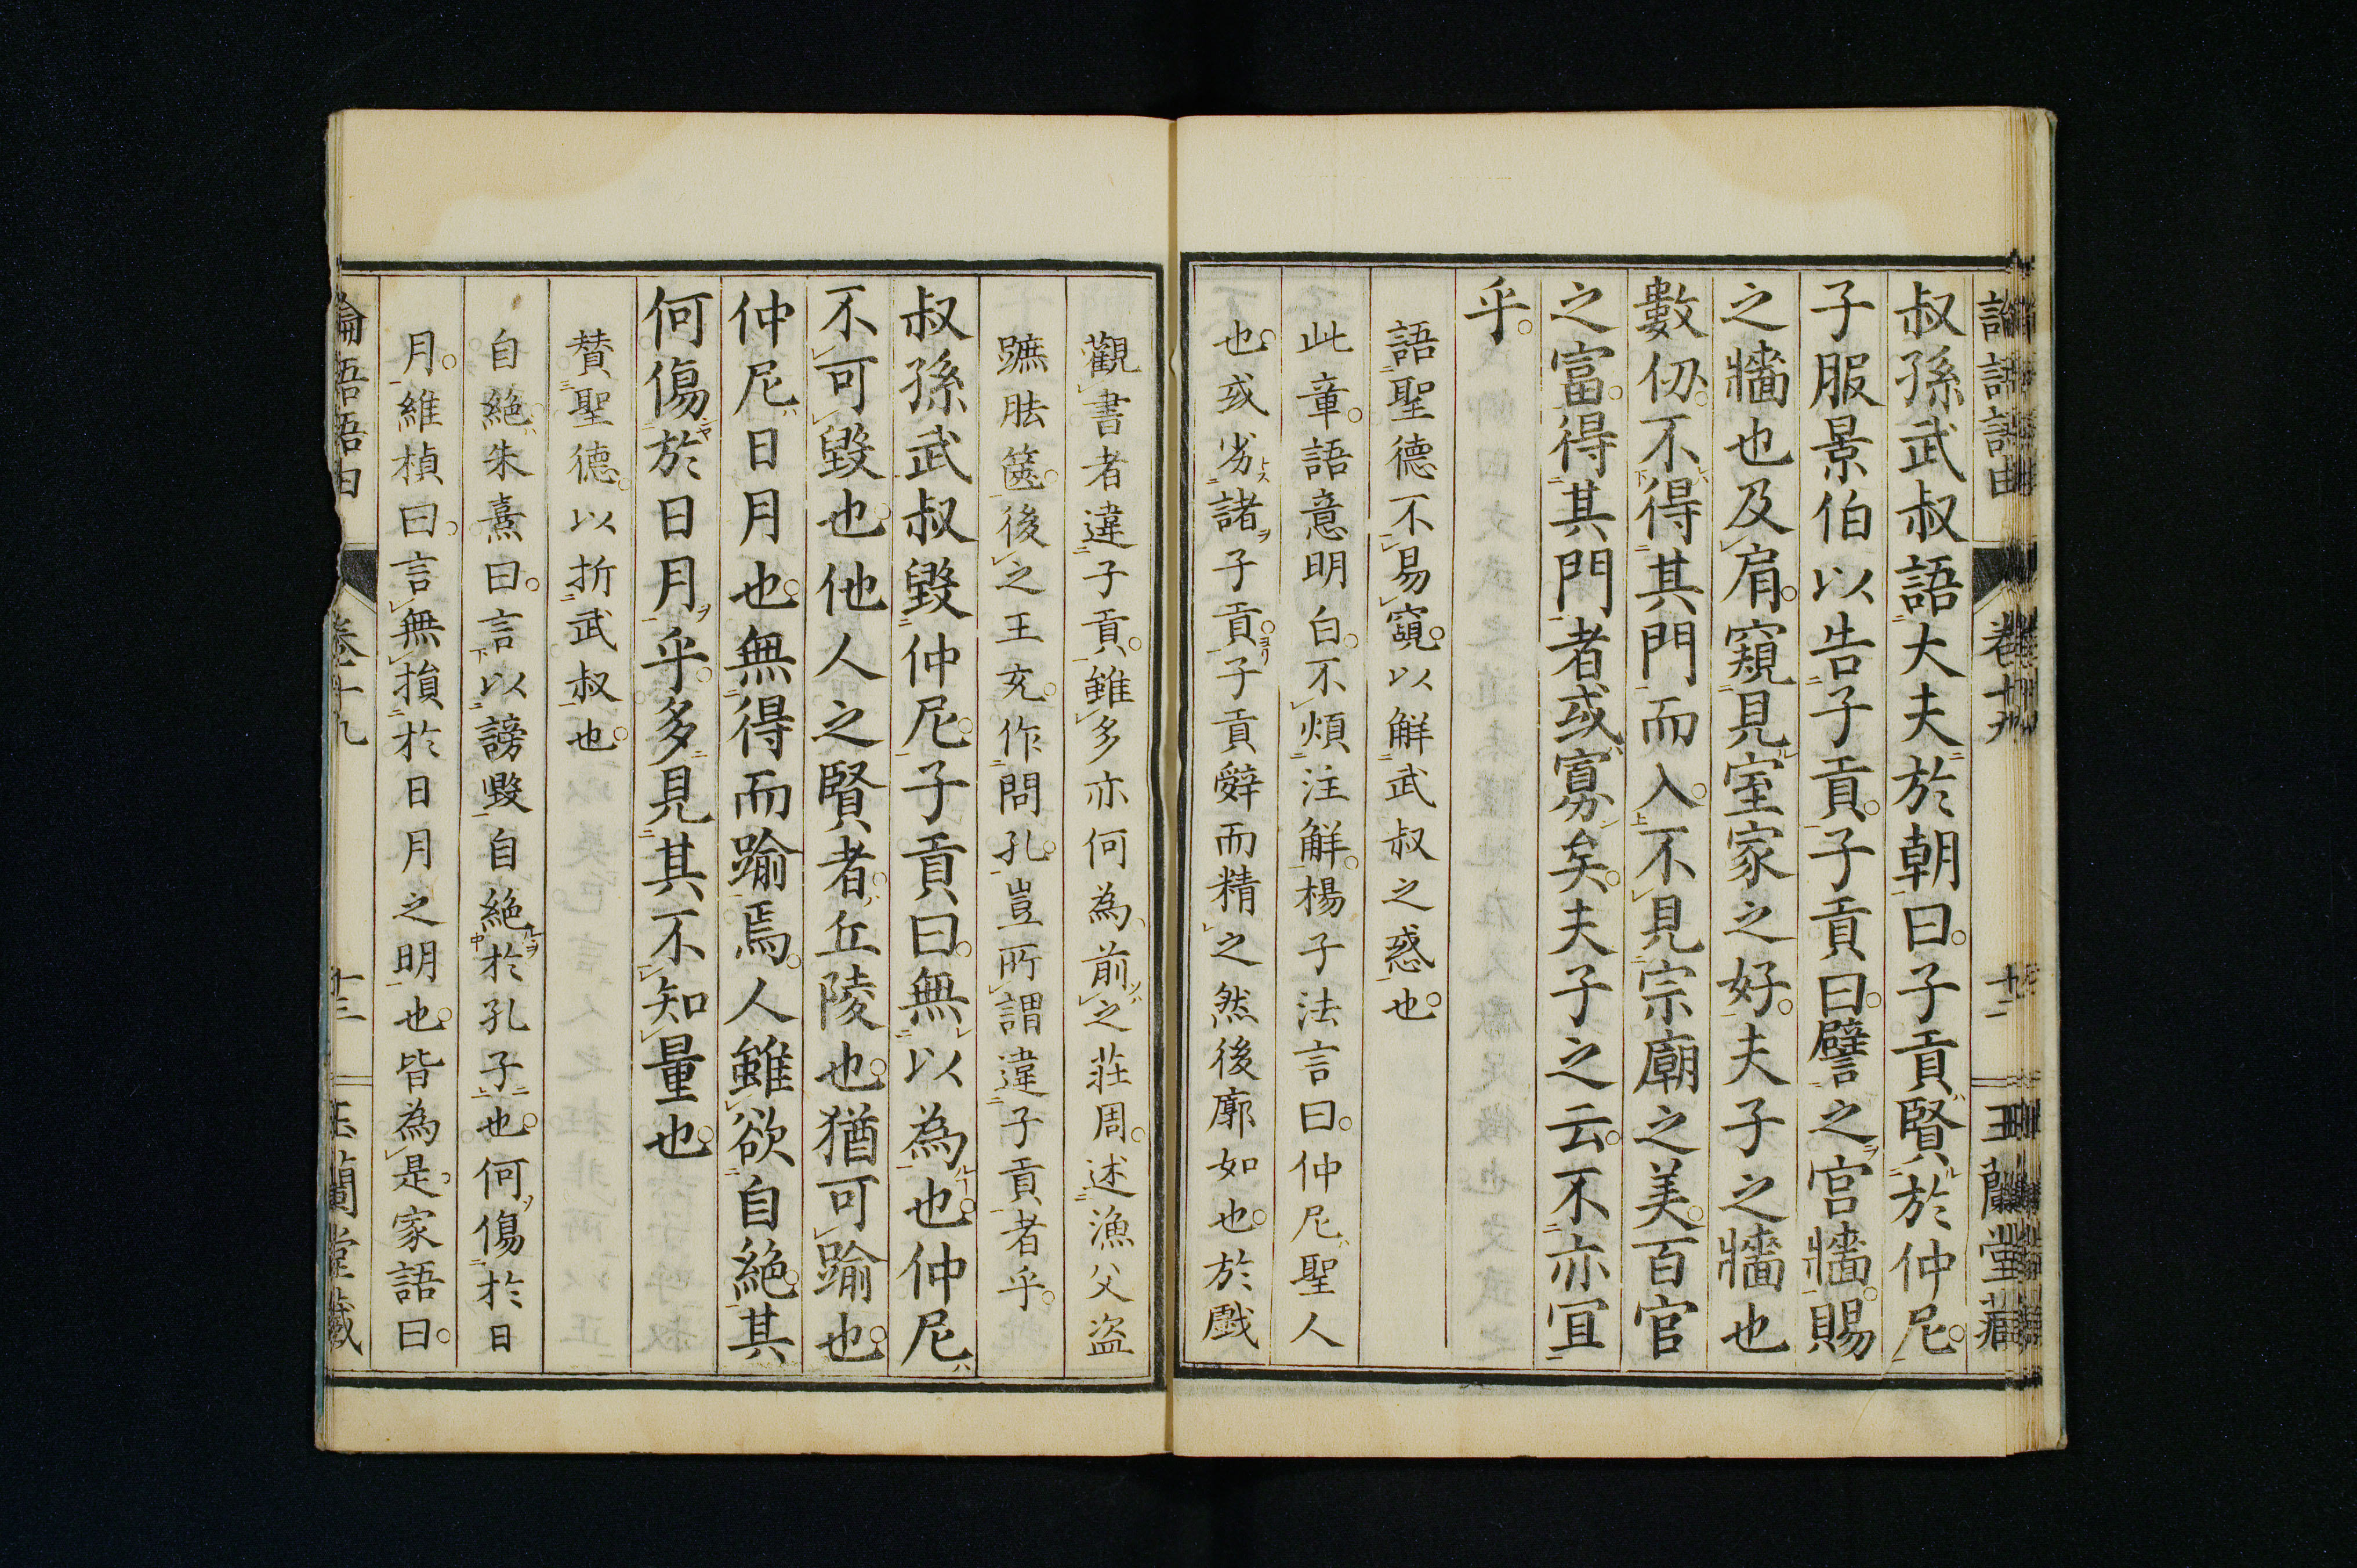 論語語由 卷十九 十二 玉蘭堂藏
叔孫武叔語大夫於朝曰子貢賢於仲尼
子服景伯以告子貢子貢曰譬之宮牆賜
之牆也及肩窺見室家之好夫子之牆也
數仞不得其門而入不見宗廟之美百官
之富得其門者或寡矣夫子之云不亦宜
乎
語聖德不易窺以解武叔之惑也
此章語意明白不煩注解楊子法言曰仲尼聖人
也或劣諸子貢子貢辭而精之然後廓如也於戲
觀書者違子貢雖多亦何為前之莊周述漁父盜
蹠胠篋後之王充作問孔豈所謂違子貢者乎
叔孫武叔毀仲尼子貢曰無以為也仲尼
不可毀也他人之賢者丘陵也猶可踰也
仲尼日月也無得而踰焉人雖欲自絕其
何傷於日月乎多見其不知量也
賛聖德以折武叔也
自絕朱熹曰言以謗毀自絕於孔子也何傷於日
月維楨曰言無損於日月之明也皆為是家語曰
論語語由 卷十九 十三 玉蘭堂藏